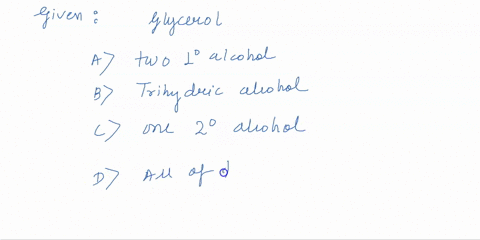 Given : Glycerol
A> two 1° alcohol
B> Trihydric alcohol
C> one 2° alcohol
D> All of